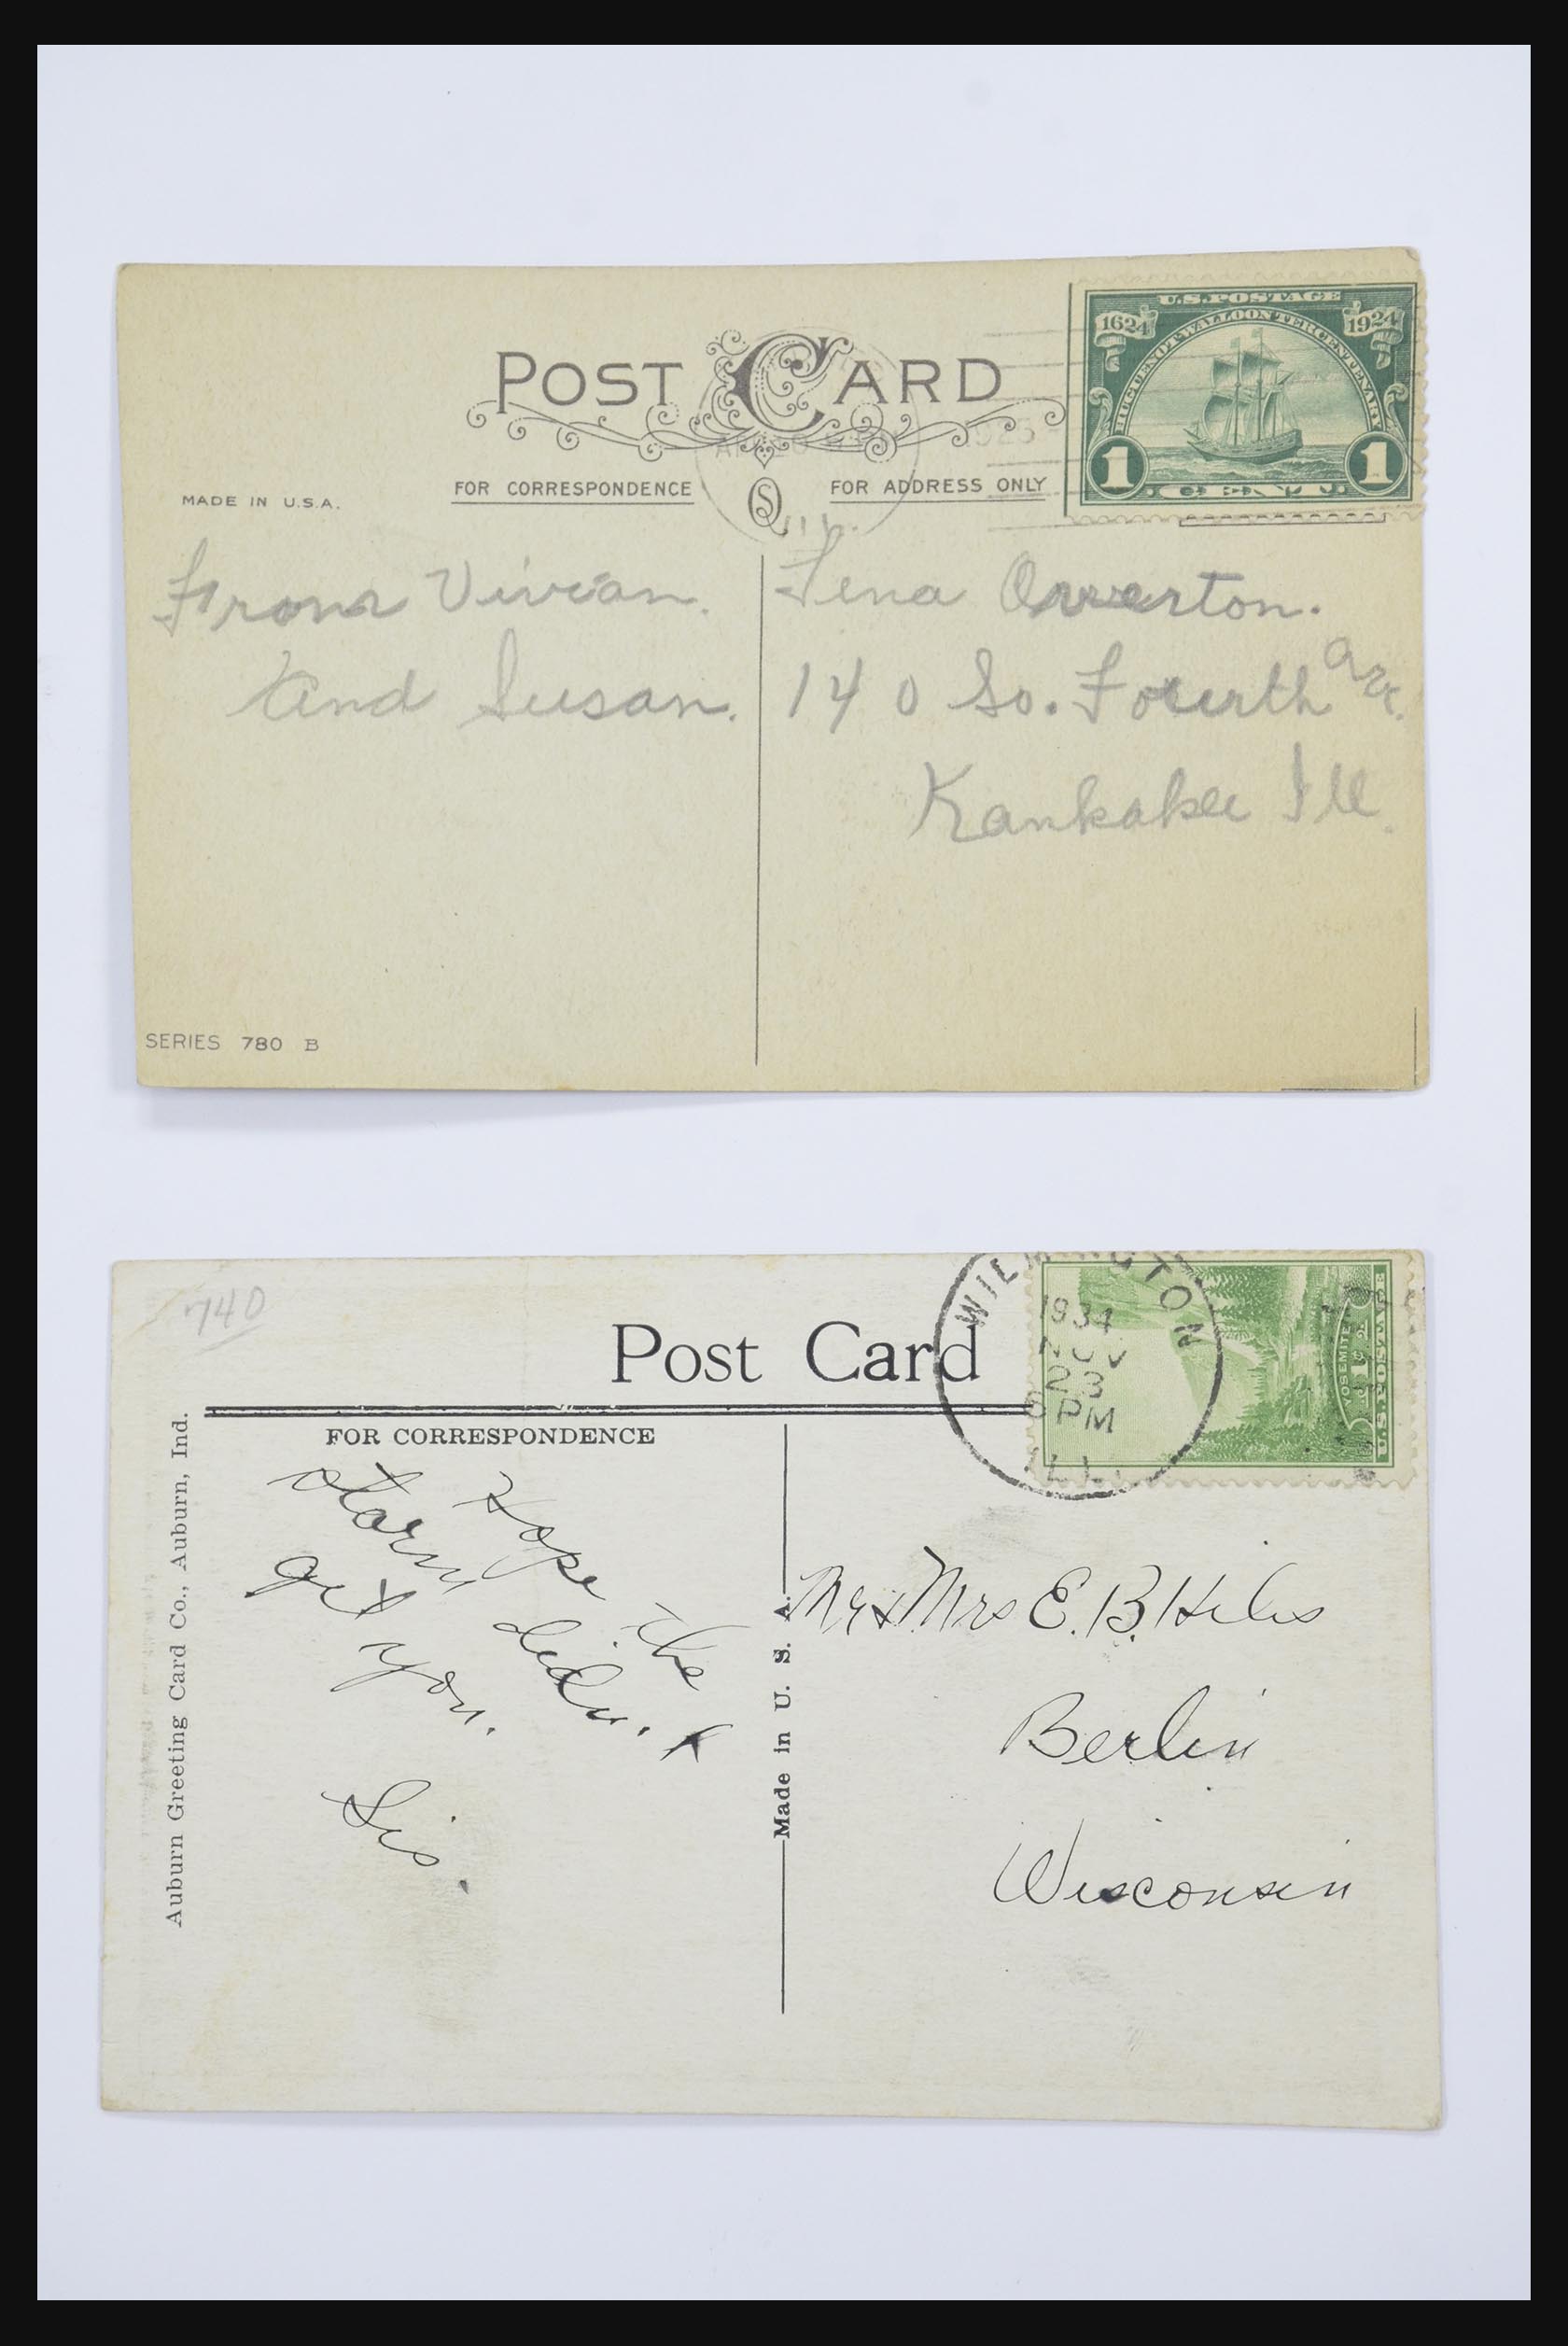 U.S. POSTAGE
1624 1924
HUGUENOT-WALLOON TERCENTENARY
1 CENT 1
1925
POST CARD
FOR CORRESPONDENCE
FOR ADDRESS ONLY
MADE IN U.S.A.
From Vivian.
And Susan.
Lena Overton.
140 So. Fourth Ave.
Kankakee Ill.
SERIES 780 B
740
Post Card
WILMINGTON
1934
NOV
23
PM
ILL.
YOSEMITE
1¢
U.S. POSTAGE
FOR CORRESPONDENCE
Auburn Greeting Card Co., Auburn, Ind.
Hope the
storm didn't
get you.
Sis.
Made in U. S. A.
Mr & Mrs E. B. Hiles
Berlin
Wisconsin